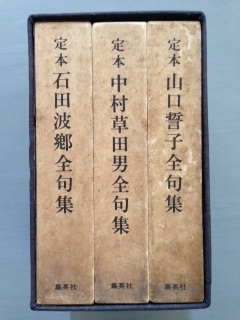 定本 山口誓子全句集
集英社
定本 中村草田男全句集
集英社
定本 石田波郷全句集
集英社